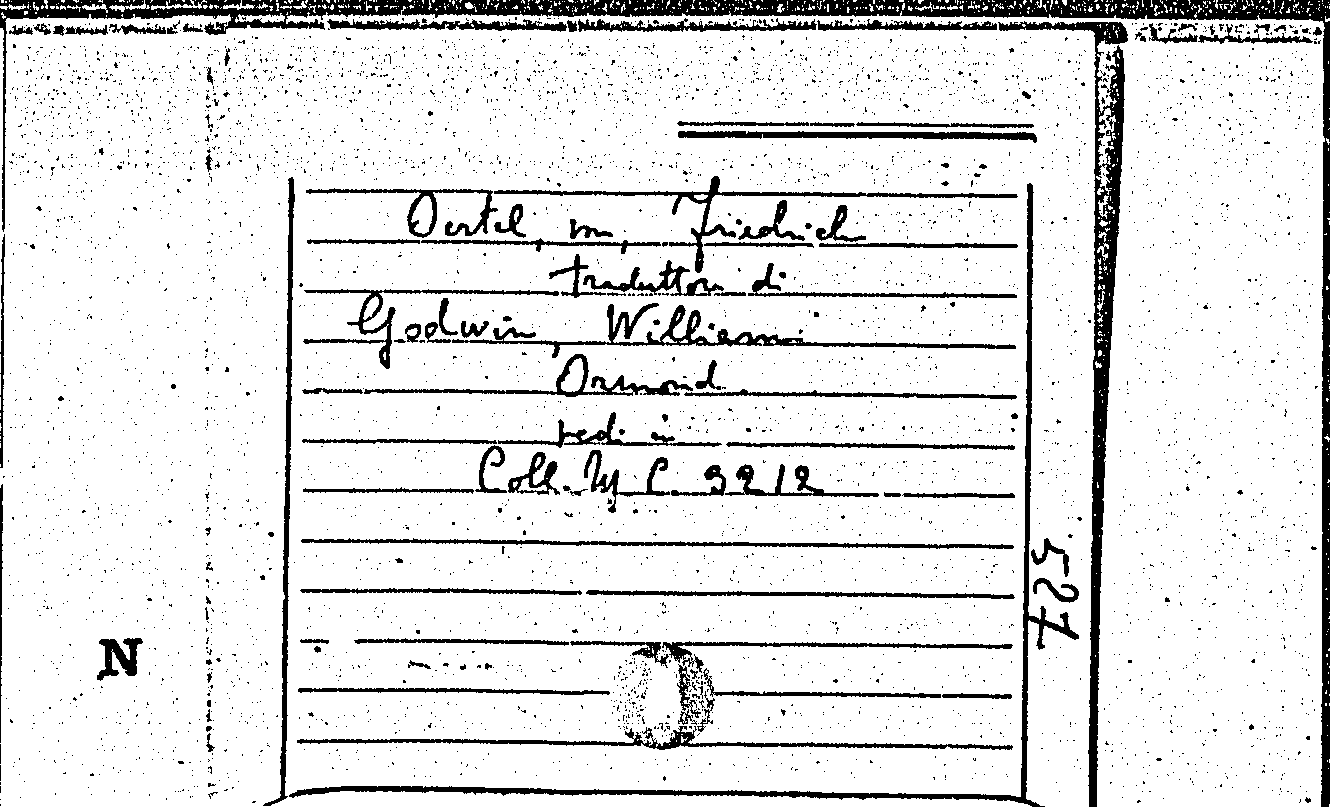 Oertel, von, Friedrich
traduttore di
Godwin, William
Ormond
vedi in
Coll. M C. 9212
527
N